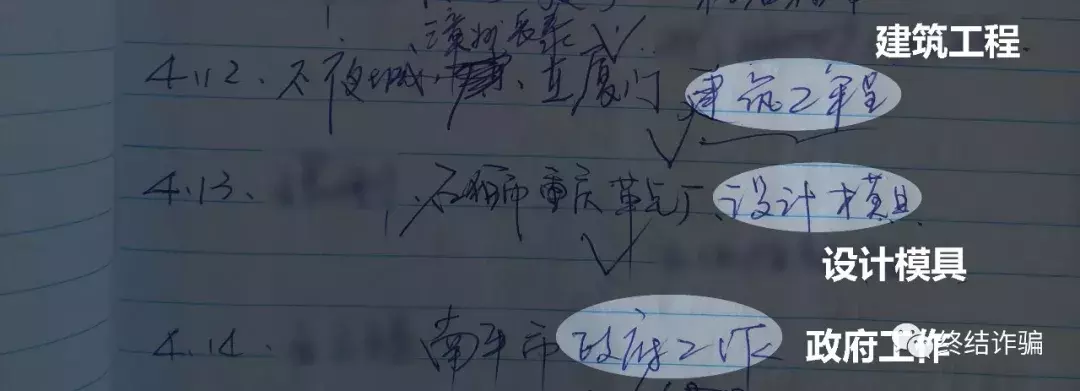 建筑工程
漳州长泰
4.12、不夜城、在厦门建筑工程
4.13.、石狮市重庆 设计模具
设计模具
4.14. 南平市政府工作
政府工作
终结诈骗